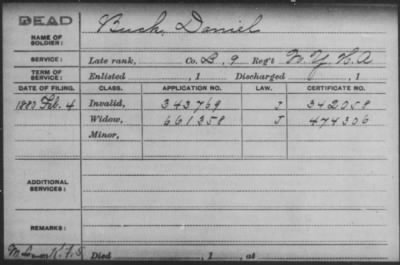 DEAD
Bush, Daniel
NAME OF SOLDIER:
SERVICE: Late rank, Co. B, 9 Reg't N.Y.H.A
TERM OF SERVICE: Enlisted , 1 Discharged , 1
DATE OF FILING. CLASS. APPLICATION NO. LAW. CERTIFICATE NO.
1880 Feb. 4 Invalid, 343,769 J 342058
Widow, 661358 J 474306
Minor,
ADDITIONAL SERVICES:
REMARKS:
Died , 1 , at